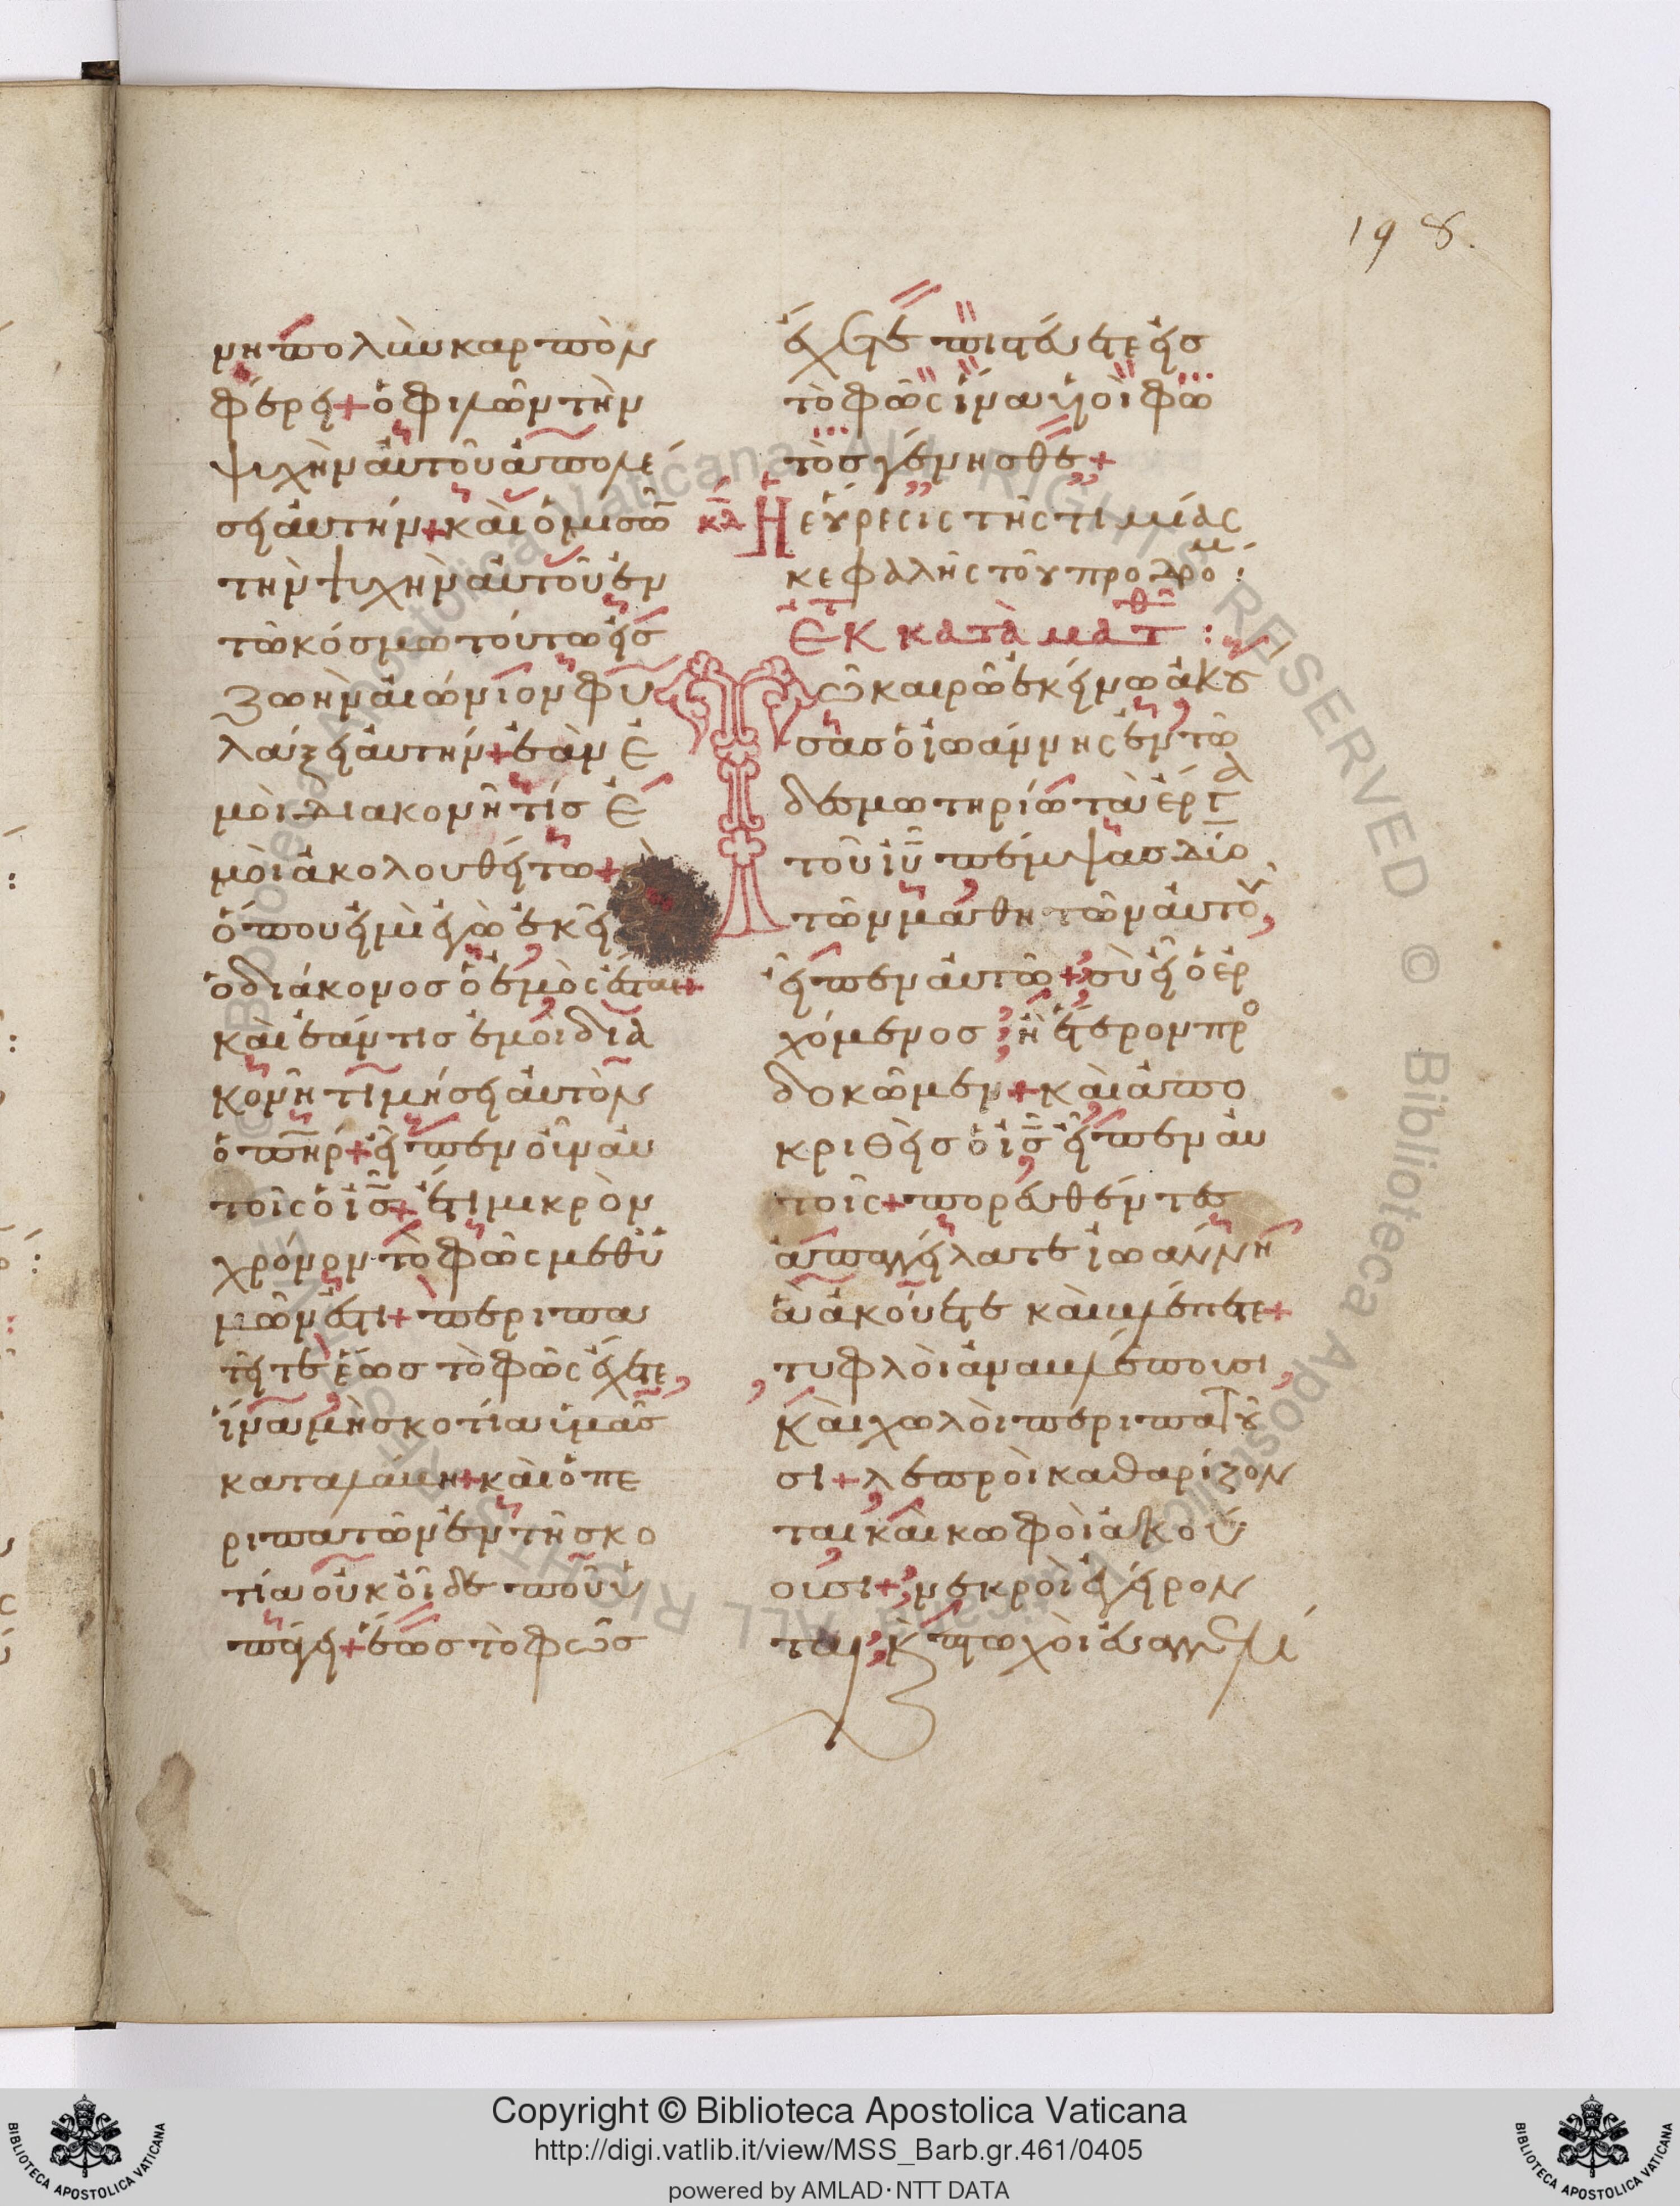 198.
νη πολὺν καρπὸν
φέρει + ὁ φιλῶν τὴν
ψυχὴν αὐτοῦ ἀπολέ
σει αὐτήν + καὶ ὁ μισῶ̅
τὴν ψυχὴν αὐτοῦ ἐν
τῶ κόσμω τούτω εἰς
ζωὴν αἰώνιον φυ
λάξει αὐτήν + ἐὰν ἐ
μοὶ διακονῆ τίς ἐ
μοὶ ἀκολουθείτω +
ὅπου εἰμὶ ἐγὼ ἐκεῖ
ὁ διάκονος ὁ ἐμὸς ἔσται +
καὶ ἐάν τις ἐμοὶ δια
κονῆ τιμήσει αὐτὸν
ὁ π̅η̅ρ + εἶπεν οὖν αὐ
τοῖς ὁ ι̅ς̅ + ἔτι μικρὸν
χρόνον τὸ φῶς μεθ ὑ
μῶν ἐστι + περιπα
τεῖτε ἕως τὸ φῶς ἔχετε,
ἵνα μὴ σκοτία ὑμᾶς
καταλάβη + καὶ ὁ πε
ριπατῶν ἐν τῆ σκο
τία οὐκ οἶδε ποῦ ὑ
πάγει + ἕως τὸ φῶς
ἔχετε πιστεύετε εἰς
τὸ φῶς ἵνα υἱοὶ φω
τὸς γένησθε +
κδ Ἡ εὕρεσις τῆς τιμίας
κεφαλῆς τοῦ προδρομ :
Ἐκ κατὰ ματθ :
Τῶ καιρῶ ἐκείνω ἀκού
σας ὁ ἰωάννης ἐν τῶ
δεσμωτηρίω τὰ ἔργα
τοῦ ι̅υ̅ πέμψας δύο
τῶν μαθητῶν αὐτοῦ,
εἶπεν αὐτῶ + σὺ εἶ ὁ ἐρ
χόμενος ; ἢ ἕτερον προ
δοκῶμεν + καὶ ἀπο
κριθεὶς ὁ ι̅ς̅ εἶπεν αὐ
τοῖς + πορευθέντες
ἀπαγγείλατε ἰωάννη
ἃ ἀκούετε καὶ βλέπετε +
τυφλοὶ ἀναβλέπουσι,
καὶ χωλοὶ περιπατοῦ
σι + λεπροὶ καθαρίζον
ται καὶ κωφοὶ ἀκού
ουσι + νεκροὶ ἐγείρον
ται, κ πτωχοὶ εὐαγγελί
Copyright © Biblioteca Apostolica Vaticana
http://digi.vatlib.it/view/MSS_Barb.gr.461/0405
powered by AMLAD·NTT DATA